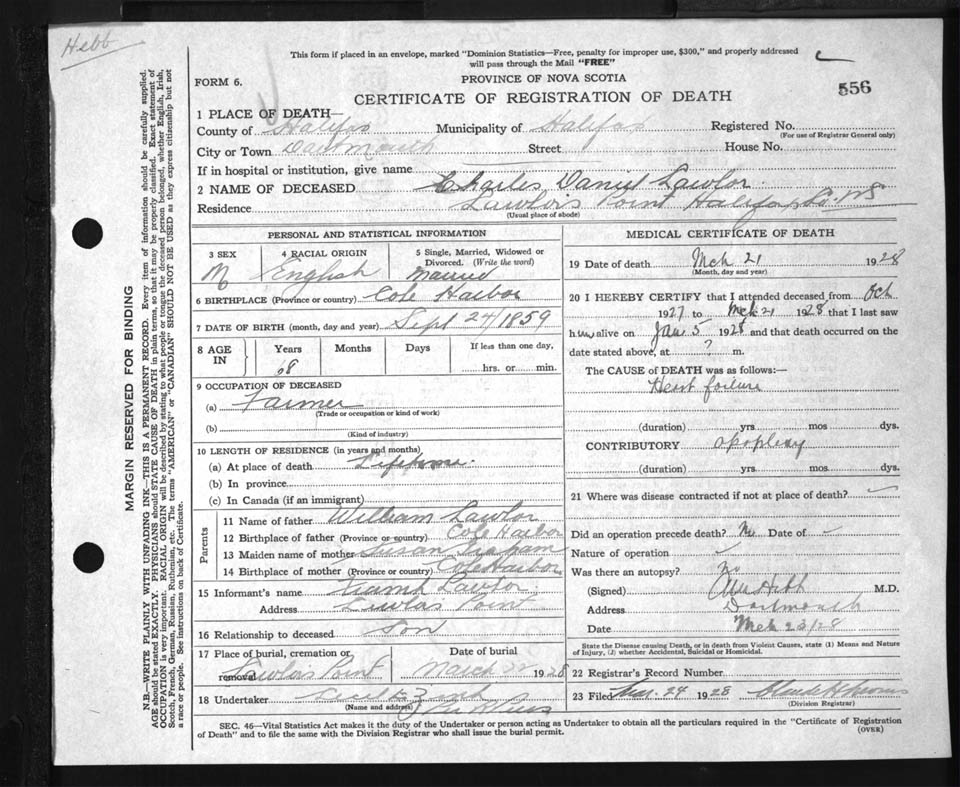 Hebb
This form if placed in an envelope, marked "Dominion Statistics—Free, penalty for improper use, $300," and properly addressed
will pass through the Mail "FREE"
FORM 6.
PROVINCE OF NOVA SCOTIA
556
CERTIFICATE OF REGISTRATION OF DEATH
1 PLACE OF DEATH—
County of Halifax Municipality of Halifax Registered No.
(For use of Registrar General only)
City or Town Dartmouth Street House No.
If in hospital or institution, give name
2 NAME OF DECEASED Charles Daniel Lawlor
Residence Lawlor's Point Halifax Co. NS
(Usual place of abode)
PERSONAL AND STATISTICAL INFORMATION
3 SEX M
4 RACIAL ORIGIN English
5 Single, Married, Widowed or Divorced. (Write the word) Married
6 BIRTHPLACE (Province or country) Cole Harbor
7 DATE OF BIRTH (month, day and year) Sept 24/1859
8 AGE IN Years Months Days If less than one day,
68 hrs. or min.
9 OCCUPATION OF DECEASED
(a) Farmer
(Trade or occupation or kind of work)
(b)
(Kind of industry)
10 LENGTH OF RESIDENCE (in years and months)
(a) At place of death Lifetime
(b) In province
(c) In Canada (if an immigrant)
Parents
11 Name of father William Lawlor
12 Birthplace of father (Province or country) Cole Harbor
13 Maiden name of mother Susan Graham
14 Birthplace of mother (Province or country) Cole Harbor
15 Informant's name Lawlor
Address Lawlors Point
16 Relationship to deceased Son
17 Place of burial, cremation or removal Date of burial
Lawlor's Point March 22 1928
18 Undertaker
(Name and address)
MEDICAL CERTIFICATE OF DEATH
19 Date of death Mch 21 1928
(Month, day and year)
20 I HEREBY CERTIFY that I attended deceased from Oct
1927 to Mch 21 1928 that I last saw
him alive on Jan 5 1928 and that death occurred on the
date stated above, at ? m.
The CAUSE of DEATH was as follows:—
Heart failure
(duration) yrs mos dys.
CONTRIBUTORY apoplexy
(duration) yrs. mos dys.
21 Where was disease contracted if not at place of death?
Did an operation precede death? No Date of
Nature of operation
Was there an autopsy? No
(Signed) Hebb M.D.
Address Dartmouth
Date Mch 23/28
State the Disease causing Death, or in death from Violent Causes, state (1) Means and Nature
of Injury, (2) whether Accidental, Suicidal or Homicidal.
22 Registrar's Record Number
23 Filed Mar. 24 1928
(Division Registrar)
SEC. 46—Vital Statistics Act makes it the duty of the Undertaker or person acting as Undertaker to obtain all the particulars required in the "Certificate of Registration
of Death" and to file the same with the Division Registrar who shall issue the burial permit.
(OVER)
MARGIN RESERVED FOR BINDING
N.B.—WRITE PLAINLY WITH UNFADING INK—THIS IS A PERMANENT RECORD. Every item of information should be carefully supplied.
AGE should be stated EXACTLY. PHYSICIANS should STATE CAUSE OF DEATH in plain terms, so that it may be properly classified. Exact statement of
OCCUPATION is very important. RACIAL ORIGIN will be described by stating to what people or tongue the deceased person belonged, whether English, Irish,
Scotch, French, German, Russian, Ruthenian, etc. The terms "AMERICAN" or "CANADIAN" SHOULD NOT BE USED as they express citizenship but not
a race or people. See instructions on back of Certificate.